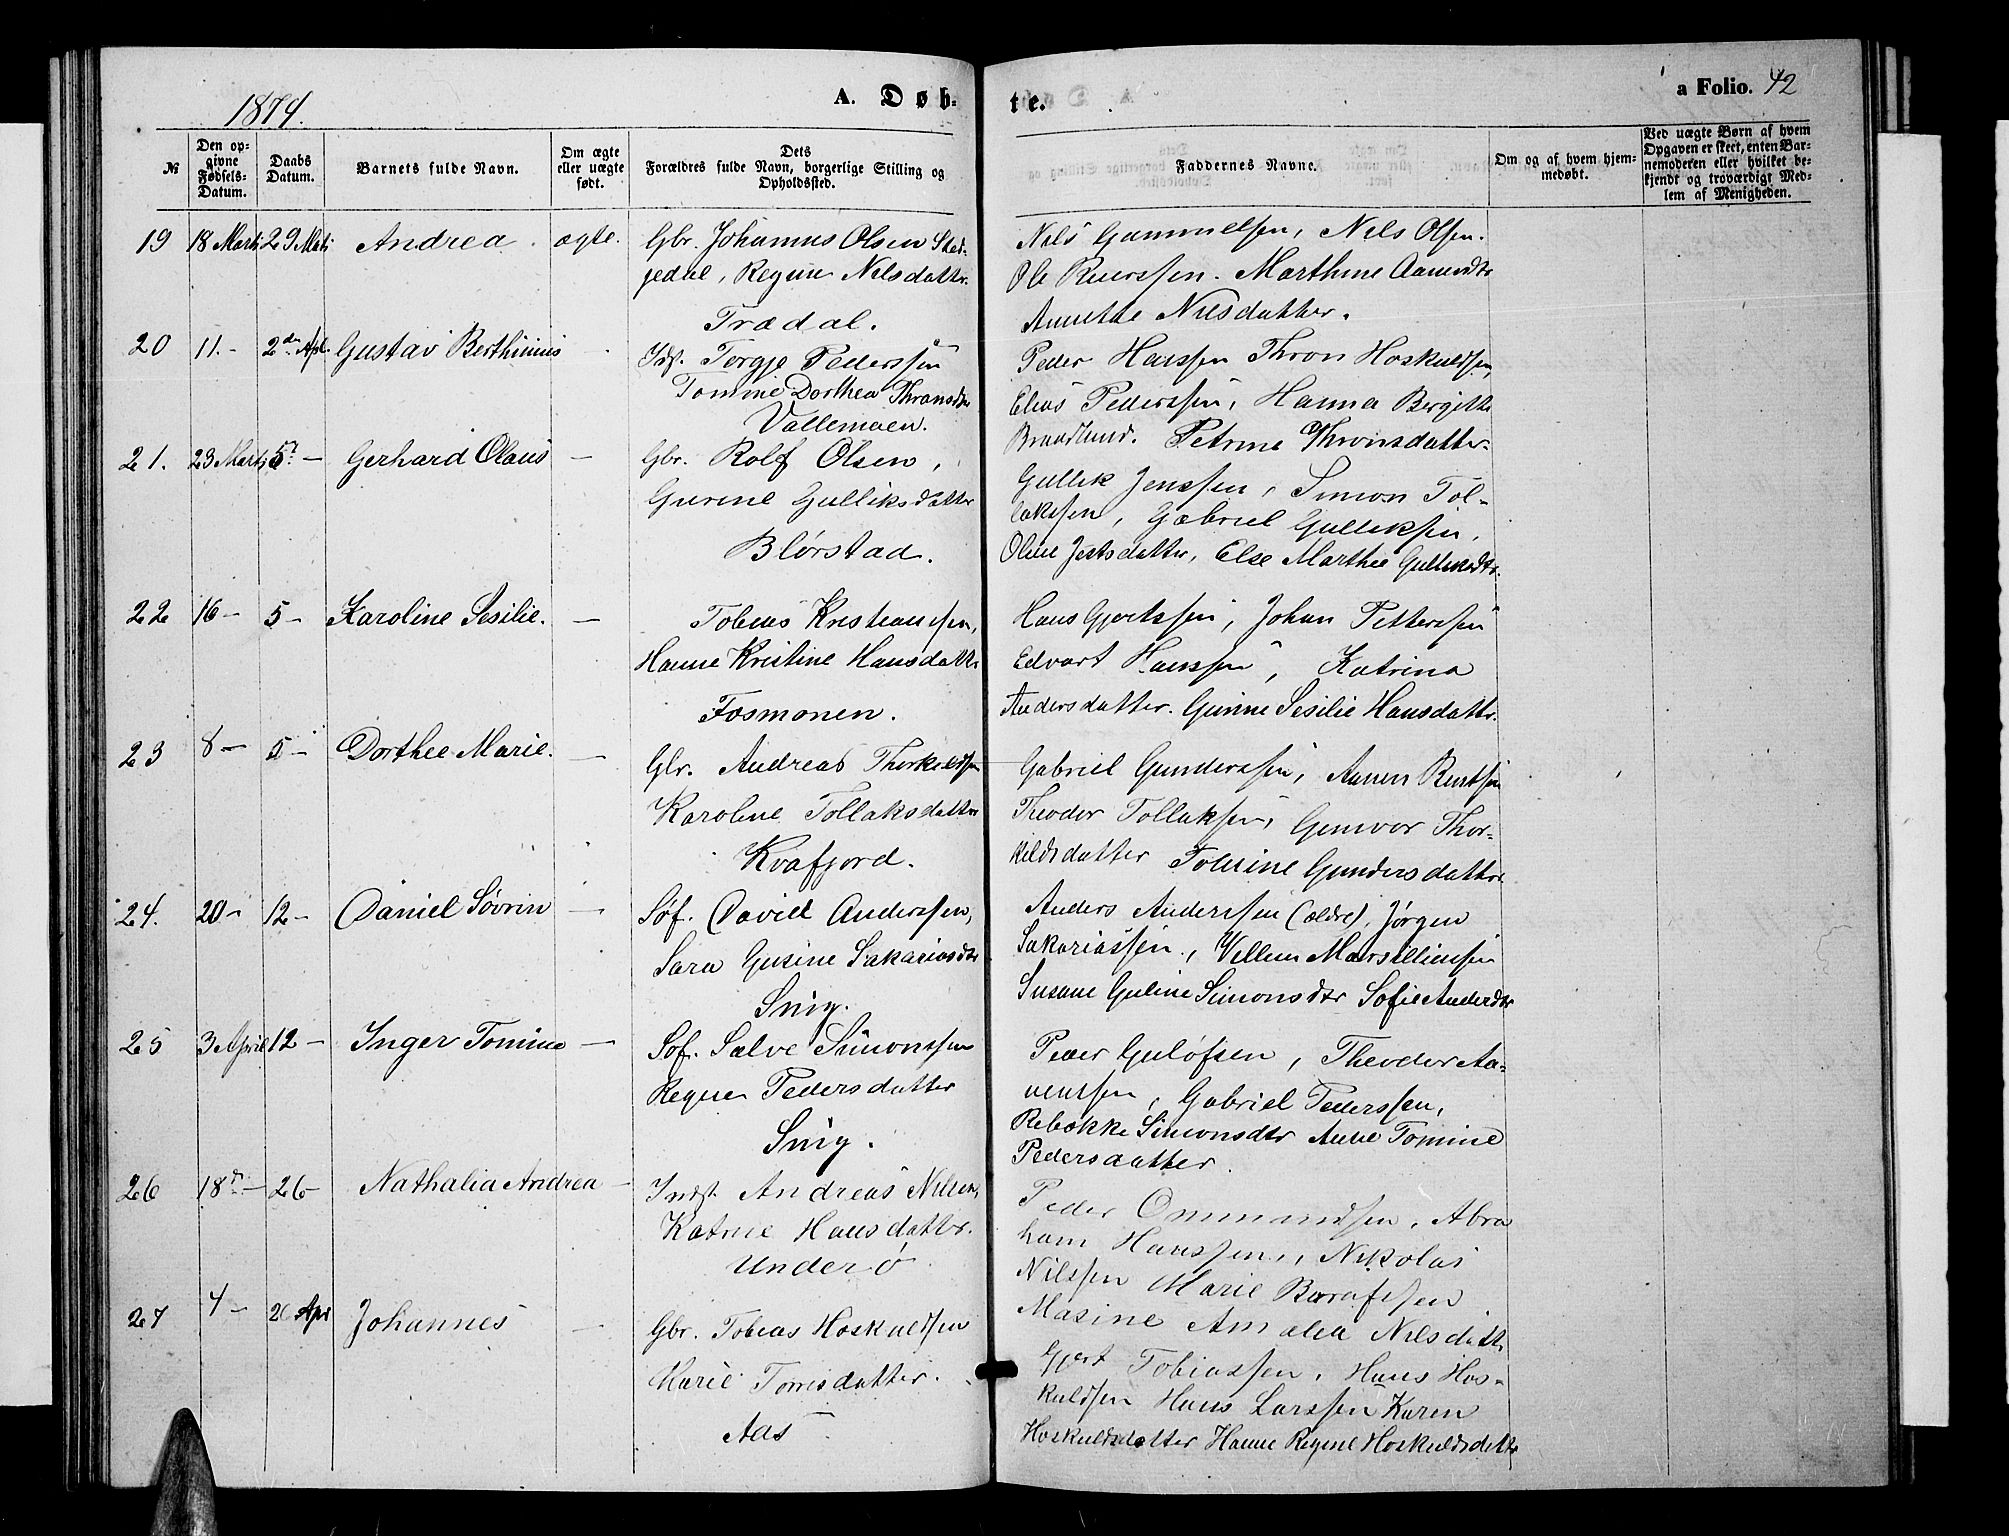 1874.
A. Døb-
te.
a Folio. 42
№
Den op-
givne
Fødsels-
Datum.
Daabs
Datum.
Barnets fulde Navn.
Om ægte
eller uægte
født.
Dets
Forældres fulde Navn, borgerlige Stilling og
Opholdssted.
Faddernes Navne.
Om og af hvem hjem-
medøbt.
Ved uægte Børn af hvem
Opgaven er skeet, enten Bar-
nemoderen eller hvilket be-
kjendt og troværdigt Med-
lem af Menigheden.
19 18 Marts 29 Mats Andrea. ægte.
Gbr. Johannes Olsen
Regine Nilsdattr.
Trædal.
Nils Gammelsen, Nils Olsen.
Ole Marthine
Nilsdatter.
20 11.- 2den Apl. Gustav Berthinius -
Inds. Torgje Pederssen
Tomine Dorthea Thronsdtr
Vallemoen.
Peder Hanssen Thron Hoskuldsen,
Elias Pederssen, Hanna Bergitte
Brandlund. Petrine Thronsdatter
21. 23 Marts 5t - Gerhard Olaus -
Gbr. Rolf Olsen,
Gurine Gulliksdatter
Blørstad.
Gullik Jenssen, Simon Tol-
lakssen, Gabriel Gulliksen,
Oline Else Marthee Gulliksdtr.
22 16 - 5 - Karoline Sesilie. -
Tobias Kristianssen,
Hanne Kristine Hansdattr
Fosmonen.
Hans Gjertssen, Johan Petterssen
Edvart Hanssen, Katrina
Andersdatter. Gunne Sesilie Hansdattr.
23 8 - 5 - Dorthee Marie. -
Gbr. Andreas Thorkildsen
Karoline Tollaksdatter
Kvafjord.
Gabriel Gunderssen, Aanen Berntsen
Theodor Tollaksen, Gunvor Thor-
kildsdatter Tomine Gundersdatter
24. 20 - 12 - Daniel Søvrin -
Søf. David Anderssen,
Sara Gusine Sakariasdtr
Snig.
Anders Anderssen (ældre), Jørgen
Sakariassen, Villum Marsilliussen
Susane Guline Simonsdtr Sofie Andersdtr
25 3 April 12 - Inger Tomine -
Søf. Salve Simonssen
Regine Pedersdatter
Snig.
Peder Guløfsen, Theodor Aa-
nenssen, Gabriel Pederssen,
Rebekke Simonsdtr Anne Tomine
Pedersdatter.
26 18de - 26 - Nathalia Andrea -
Inds. Andreas Nilsen,
Katrine Hansdattr.
Underø
Peder Ommundsen, Abra
ham Hanssen, Nikolai
Nilssen Marie
Masine Amalia Nilsdattr
27 4 - 26 Apr Johannes -
Gbr. Tobias Hoskuldsen
Marie Torrisdatter.
Aas
Gjert Tobiassen, Hans Hos-
kuldsen Hans Larssen Karen
Hoskuldsdatter Hanne Regine Hoskuldsdattr